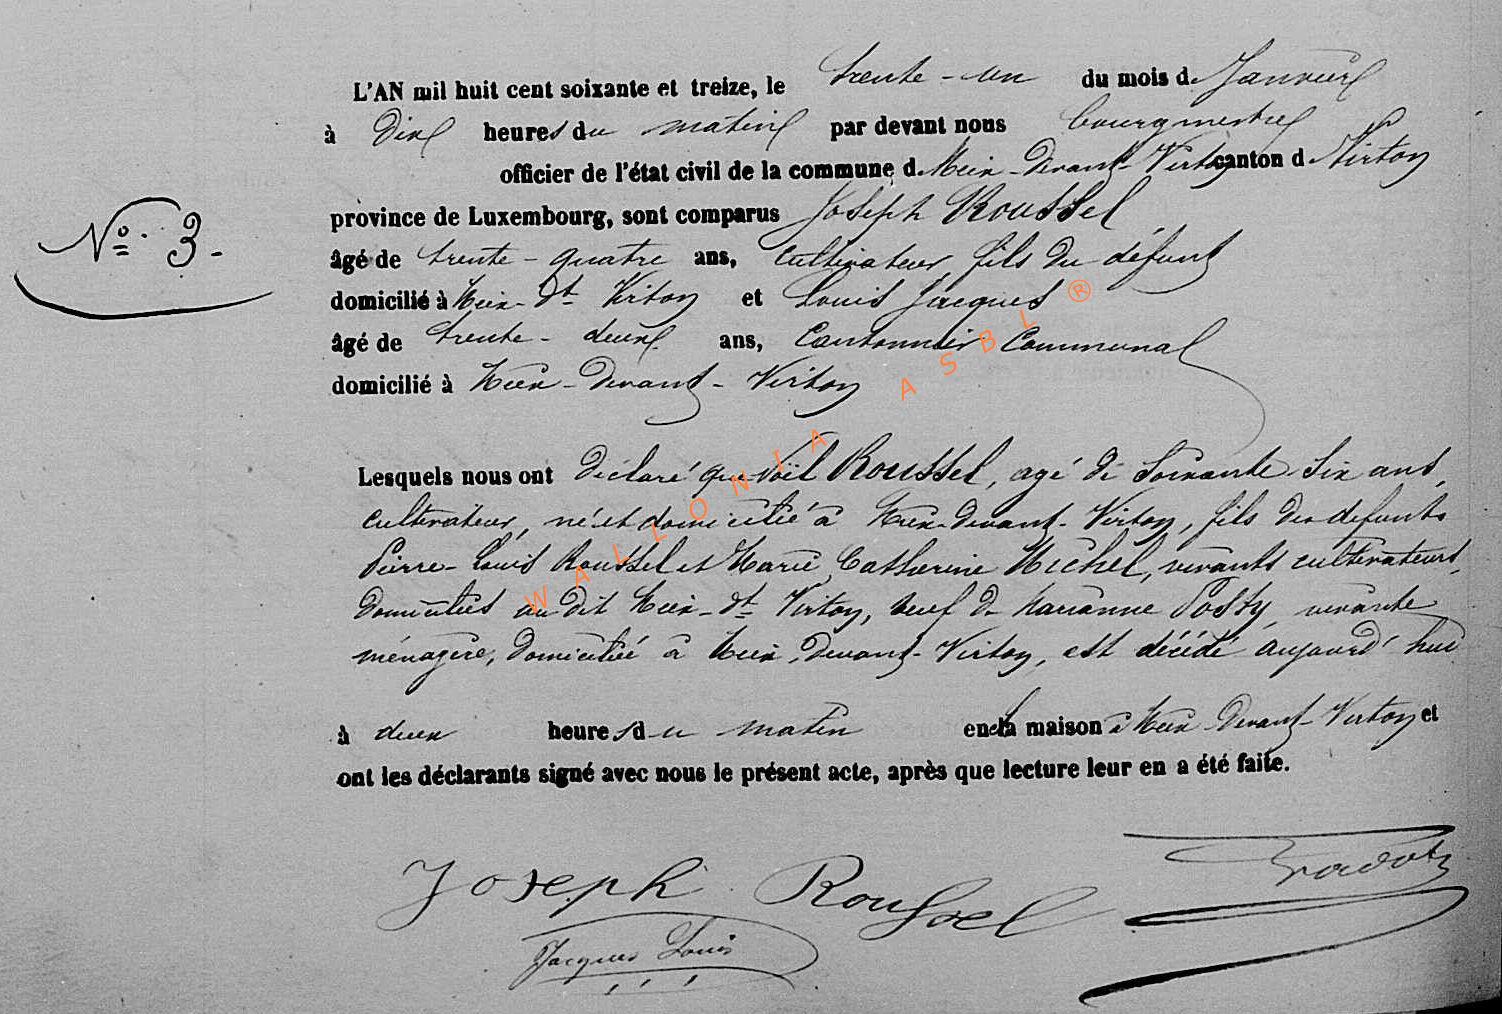 L'AN mil huit cent soixante et treize, le trente-un du mois d Janvier
à Dix heures du matin par devant nous bourgmestre
officier de l'état civil de la commune d Meix-Devant-Virton canton d Virton
N° 3.
province de Luxembourg, sont comparus Joseph Roussel
âgé de trente-quatre ans, Cultivateur, fils du défunt
domicilié à Meix-dt Virton et Louis Jacques
âgé de trente-deux ans, Cantonnier Communal
domicilié à Meix-Devant-Virton
Lesquels nous ont déclaré que Noël Roussel, agé de Soixante Six ans,
cultivateur, né et domicilié à Meix-devant-Virton, fils des defunts
Pierre-Louis Roussel et Marie Catherine Michel, vivants cultivateurs,
Domiciliés au dit Meix-dt Virton, veuf de Marianne Possy, vivante
ménagère, domiciliée à Meix-Devant-Virton, est décédé aujourd'hui
à deux heures du matin en la maison à Meix-Devant-Virton et
ont les déclarants signé avec nous le présent acte, après que lecture leur en a été faite.
Joseph Roussel
Jacques Louis
WALLONIA ASBL ®